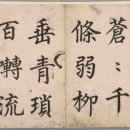 蒼〻千
條弱柳
垂青瑣
百囀流